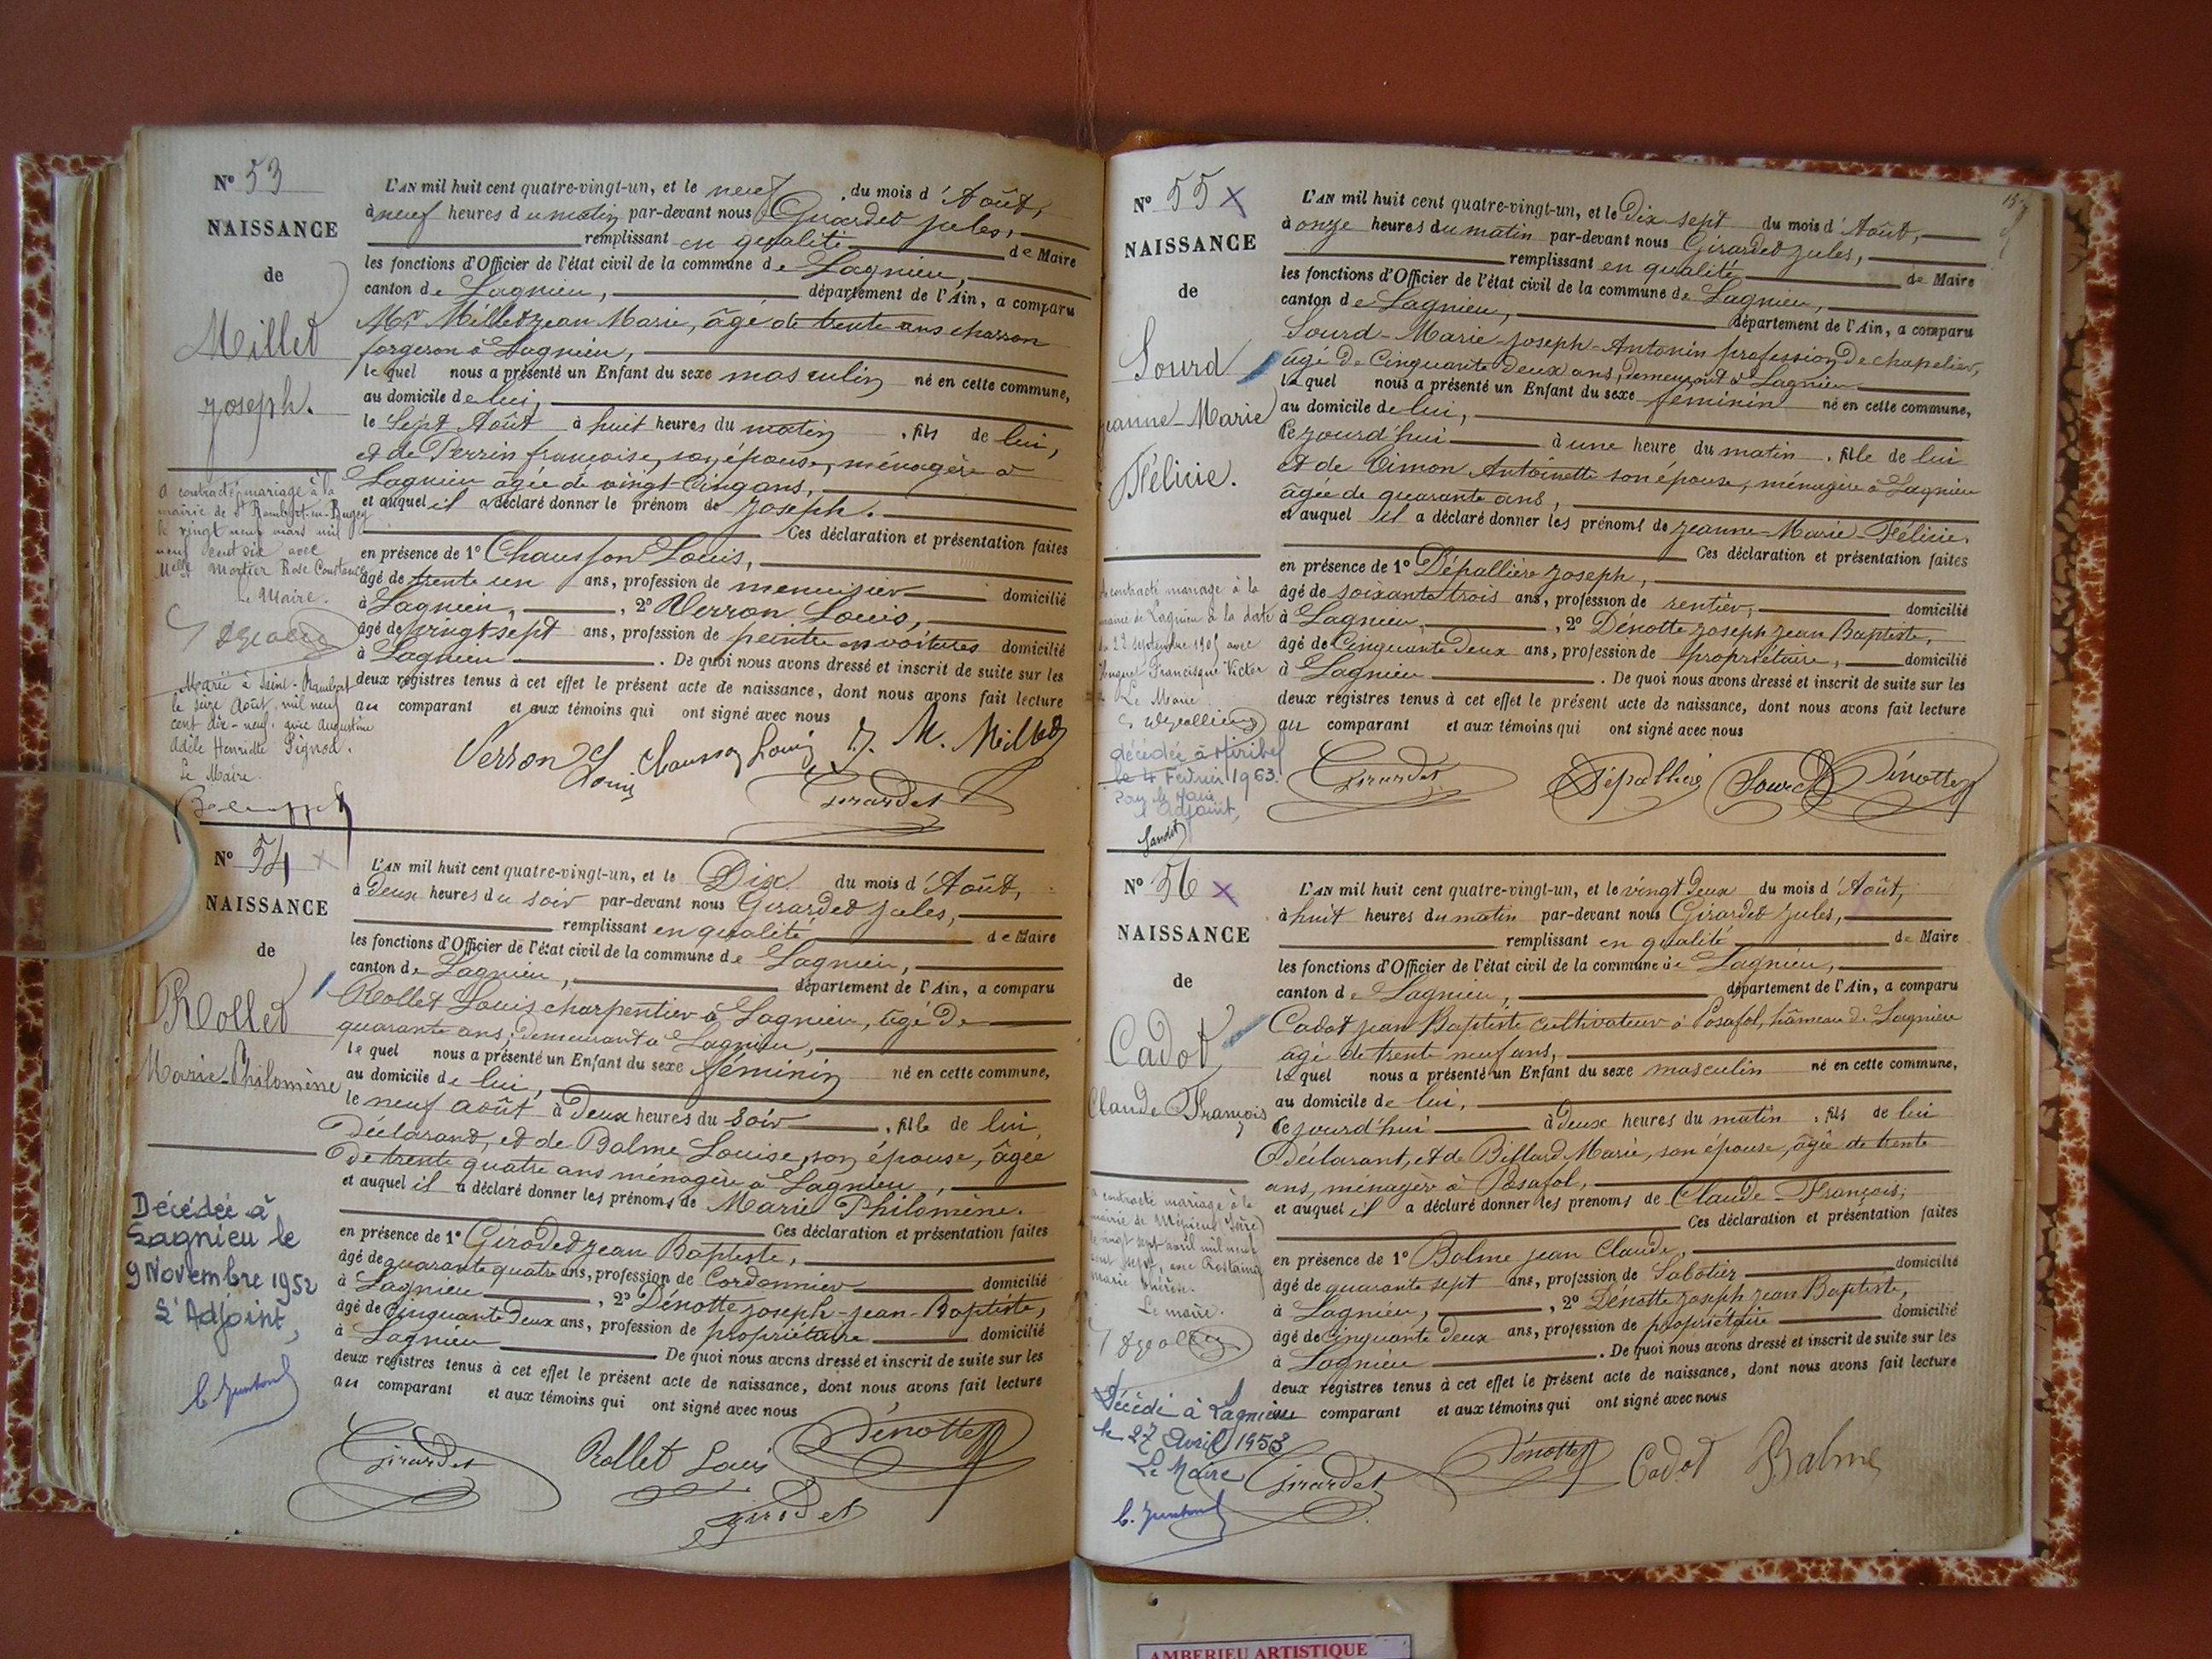 N° 53
NAISSANCE
de
Millet
Joseph.
A contracté mariage à la
mairie de St Rambert-en-Bugey
le vingt neuf mars mil
neuf cent dix avec
Melle Mortier Rose Constance
Le Maire.
Marié à Saint-Rambert
le seize Août mil neuf
cent dix-neuf avec Augustine
Adèle Henriette Pignod.
Le Maire.
L'AN mil huit cent quatre-vingt-un, et le neuf du mois d'Août,
à neuf heures du matin par-devant nous Girardet Jules,
remplissant en qualité de Maire
les fonctions d'Officier de l'état civil de la commune de Lagnieu,
canton de Lagnieu, département de l'Ain, a comparu
Mr Millet Jean Marie, âgé de trente ans charron
forgeron à Lagnieu,
lequel nous a présenté un Enfant du sexe masculin né en cette commune,
au domicile de lui,
le Sept Août à huit heures du matin, fils de lui,
et de Perrin françoise, son épouse, ménagère à
Lagnieu âgée de vingt-Cinq ans,
et auquel il a déclaré donner le prénom de Joseph.
Ces déclaration et présentation faites
en présence de 1° Chausson Louis,
âgé de trente un ans, profession de menuisier domicilié
à Lagnieu, 2° Verron Louis,
âgé de vingt sept ans, profession de peintre en voitures domicilié
à Lagnieu. De quoi nous avons dressé et inscrit de suite sur les
deux registres tenus à cet effet le présent acte de naissance, dont nous avons fait lecture
au comparant et aux témoins qui ont signé avec nous
Verron Louis Chausson Louis J. M. Millet
Girardet
N° 54 x
NAISSANCE
de
Rollet
Marie-Philomène
Décédée à
Lagnieu le
9 Novembre 1952
L'Adjoint,
L'AN mil huit cent quatre-vingt-un, et le Dix du mois d'Août,
à Deux heures du soir par-devant nous Girardet Jules,
remplissant en qualité de Maire
les fonctions d'Officier de l'état civil de la commune de Lagnieu,
canton de Lagnieu, département de l'Ain, a comparu
Rollet Louis charpentier à Lagnieu, âgé de
quarante ans, demeurant à Lagnieu,
lequel nous a présenté un Enfant du sexe féminin né en cette commune,
au domicile de lui,
le neuf août à Deux heures du Soir, fille de lui,
déclarant, et de Balme Louise, son épouse, âgée
de trente quatre ans ménagère à Lagnieu,
et auquel il a déclaré donner les prénoms de Marie Philomène.
Ces déclaration et présentation faites
en présence de 1° Girodet Jean Baptiste,
âgé de quarante quatre ans, profession de Cordonnier domicilié
à Lagnieu, 2° Dénotte Joseph-Jean-Baptiste,
âgé de Cinquante Deux ans, profession de propriétaire domicilié
à Lagnieu De quoi nous avons dressé et inscrit de suite sur les
deux registres tenus à cet effet le présent acte de naissance, dont nous avons fait lecture
au comparant et aux témoins qui ont signé avec nous
Girardet Rollet Louis Dénotte
Girodet
N° 55 x
NAISSANCE
de
Sourd
Jeanne-Marie
Félicie.
A contracté mariage à la
mairie de Lagnieu à la date
du 22 septembre 1905 avec
Francisque Victor
Le Maire
décédée à Miribel
le 4 Février 1963.
Pour le Maire
L'Adjoint,
L'AN mil huit cent quatre-vingt-un, et le Dix sept du mois d'Août,
à onze heures du matin par-devant nous Girardet Jules,
remplissant en qualité de Maire
les fonctions d'Officier de l'état civil de la commune de Lagnieu,
canton de Lagnieu, département de l'Ain, a comparu
Sourd-Marie-Joseph-Antonin profession de chapelier,
âgé de Cinquante Deux ans, demeurant à Lagnieu
lequel nous a présenté un Enfant du sexe féminin né en cette commune,
au domicile de lui,
Cejourd'hui à une heure du matin, fille de lui
et de Timon Antoinette son épouse, ménagère à Lagnieu
âgée de quarante ans,
et auquel il a déclaré donner les prénoms de Jeanne-Marie-Félicie.
Ces déclaration et présentation faites
en présence de 1° Dépallière Joseph,
âgé de soixante trois ans, profession de rentier, domicilié
à Lagnieu, 2° Dénotte Joseph Jean Baptiste,
âgé de Cinquante Deux ans, profession de propriétaire, domicilié
à Lagnieu. De quoi nous avons dressé et inscrit de suite sur les
deux registres tenus à cet effet le présent acte de naissance, dont nous avons fait lecture
au comparant et aux témoins qui ont signé avec nous
Girardet Dépallière Sourd Dénotte
N° 56 x
NAISSANCE
de
Cadot
Claude François
A contracté mariage à la
mairie de Mépieu (Isère)
le vingt sept avril mil neuf
cent sept, avec Rostaing
Marie
Le maire.
Décédé à Lagnieu
le 27 Avril 1953
Le Maire
L'AN mil huit cent quatre-vingt-un, et le vingt Deux du mois d'Août,
à huit heures du matin par-devant nous Girardet Jules,
remplissant en qualité de Maire
les fonctions d'Officier de l'état civil de la commune de Lagnieu,
canton de Lagnieu, département de l'Ain, a comparu
Cadot Jean Baptiste cultivateur à Posafol, hâmeau de Lagnieu
âgé de trente neuf ans,
lequel nous a présenté un Enfant du sexe masculin né en cette commune,
au domicile de lui,
Cejourd'hui à Deux heures du matin, fils de lui
déclarant, et de Billard Marie, son épouse, âgée de trente
ans, ménagère à Posafol,
et auquel il a déclaré donner les prénoms de Claude-François,
Ces déclaration et présentation faites
en présence de 1° Balme Jean Claude,
âgé de quarante sept ans, profession de Sabotier domicilié
à Lagnieu, 2° Dénotte Joseph Jean Baptiste,
âgé de Cinquante Deux ans, profession de propriétaire domicilié
à Lagnieu. De quoi nous avons dressé et inscrit de suite sur les
deux registres tenus à cet effet le présent acte de naissance, dont nous avons fait lecture
au comparant et aux témoins qui ont signé avec nous
Girardet Dénotte Cadot Balme
AMBERIEU ARTISTIQUE